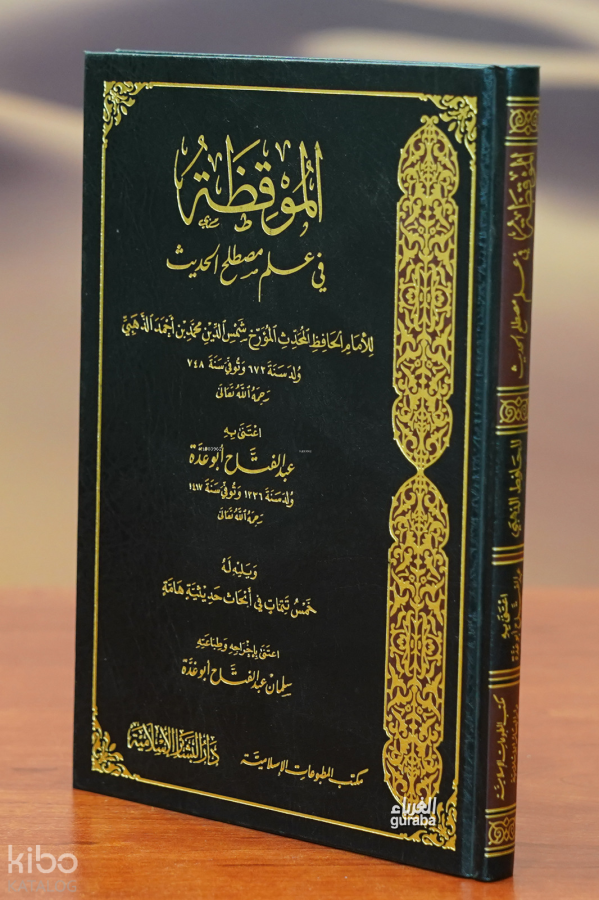 المُوْقِظَةُ
في علم مصطلح الحديث
للإمام الحافظ المحدّث المؤرّخ شمس الدّين محمّد بن أحمد الذّهبيّ
ولد سنة ٦٧٣ وتوفّي سنة ٧٤٨
رحمه الله تعالى
اعتنى به
عبد الفتّاح أبو غدّة
ولد سنة ١٣٣٦ وتوفّي سنة ١٤١٧
رحمه الله تعالى
ويليه له
خمس تتمّات في أبحاث حديثيّة هامّة
اعتنى بإخراجه وطباعته
سلمان عبد الفتّاح أبو غدّة
مكتب المطبوعات الإسلاميّة
دار البشائر الإسلامية
الموقظة
في علم مصطلح الحديث
للحافظ الذهبي
اعتنى به
عبد الفتاح أبو غدة
مكتب المطبوعات الإسلامية
الغرباء
guraba
kibo